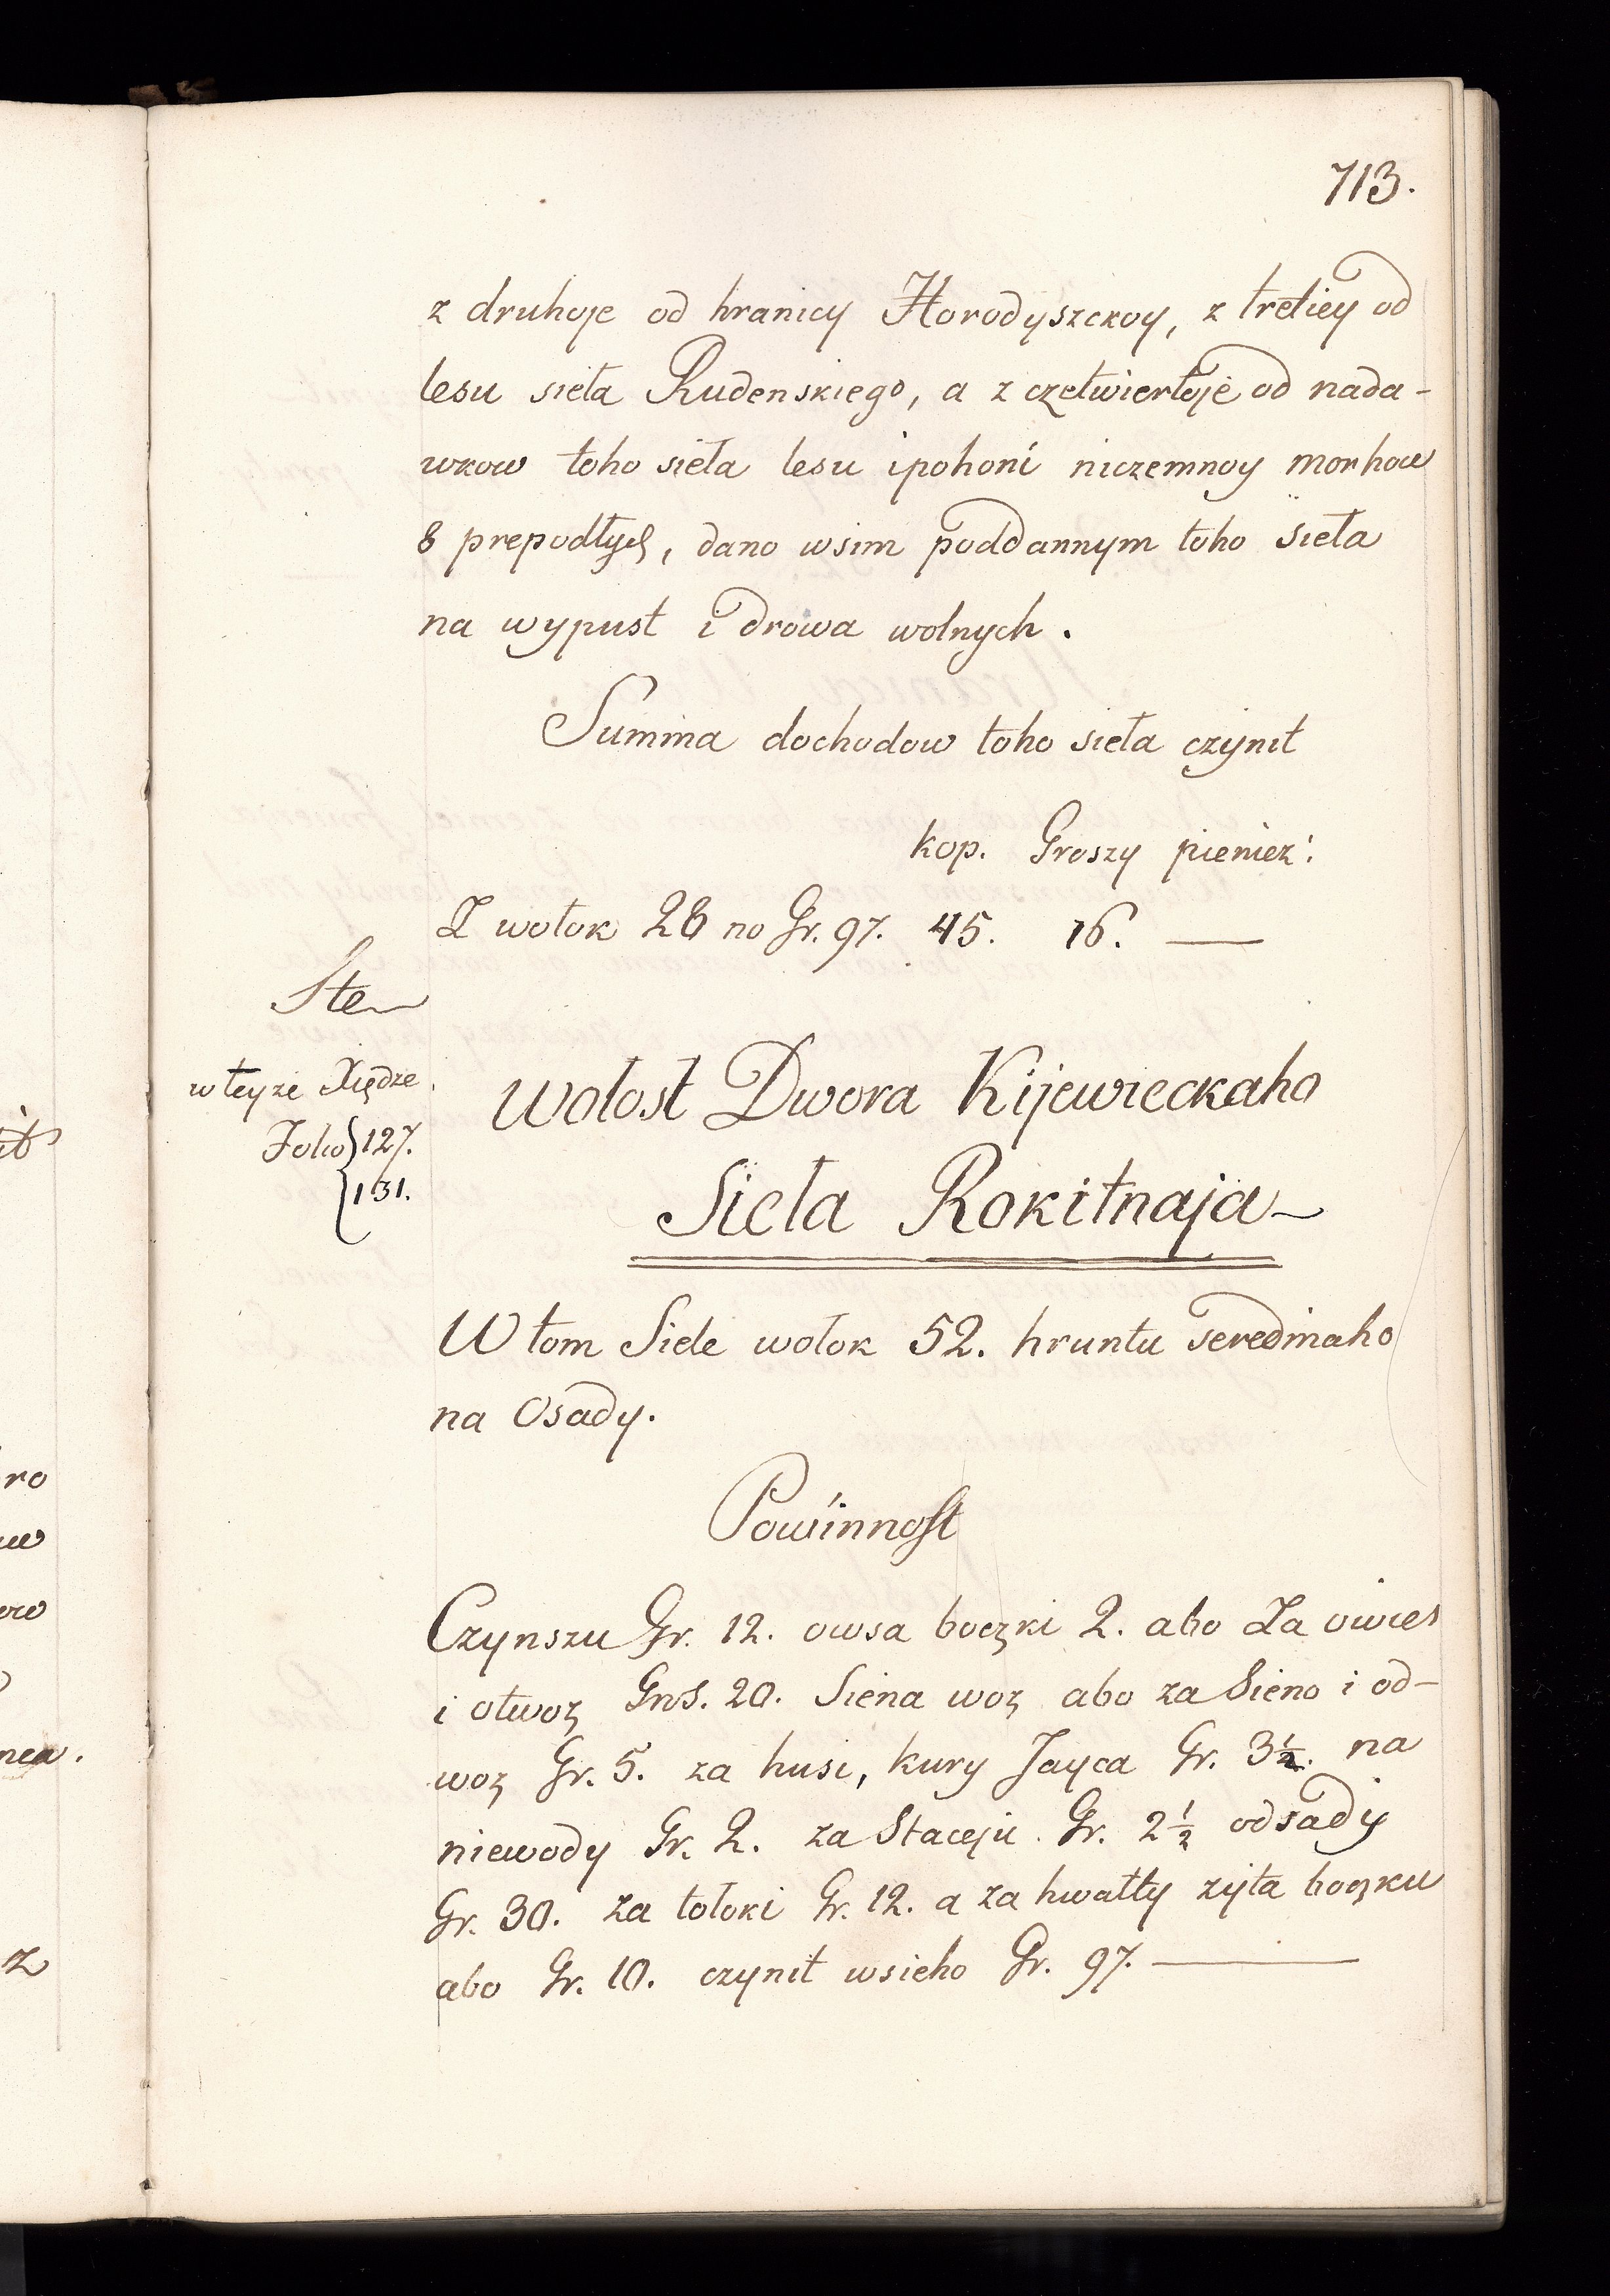 713.
z druhoje od hranicy Horodyszczoy, z tretiey od
lesu sieła Rudenskiego, a z czetwiertoje od nada-
wkow toho sieła lesu i pohoni niczemnoy morhow
8 prepodłych, dano wsim poddannym toho sieła
na wypust i drowa wolnych.
Summa dochodow toho sieła czynit
kop. Groszy pieniez:
Z wołok 28 no Gr. 97. 45. 16. —
w teyze Xiędze
Folio } 127.
{ 131.
Wołost Dwora Kijewieckaho
Sieła Rokitnaja
W tom Siele wołok 52. hruntu seredniaho
na Osady.
Powinnost
Czynszu Gr. 12. owsa boczki 2. abo Za owies
i otwoz Gros. 20. Siena woz abo za Sieno i od-
woz Gr. 5. za husi, kury Jayca Gr. 3½. na
niewody Gr. 2. za Staceju Gr. 2½ odsady
Gr. 30. za tołoki Gr. 12. a za hwałty zyta boczku
abo Gr. 10. czynit wsieho Gr. 97. —
ro
z